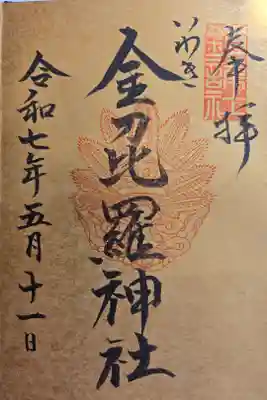 奉拝
いわき
金毘羅神社
令和七年五月十一日